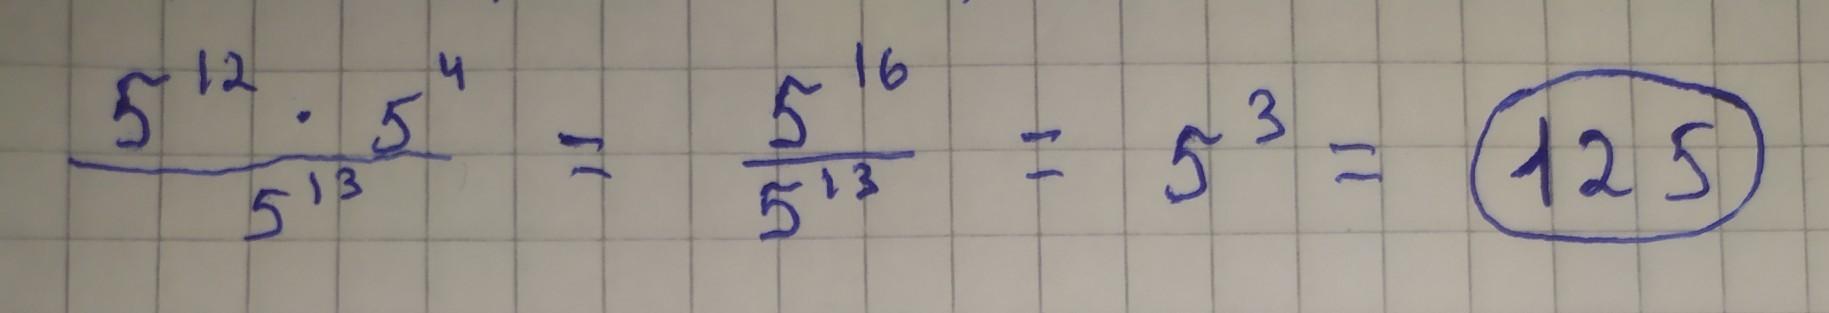 \frac{5^{12} \cdot 5^{4}}{5^{13}} = \frac{5^{16}}{5^{13}} = 5^{3} = 125